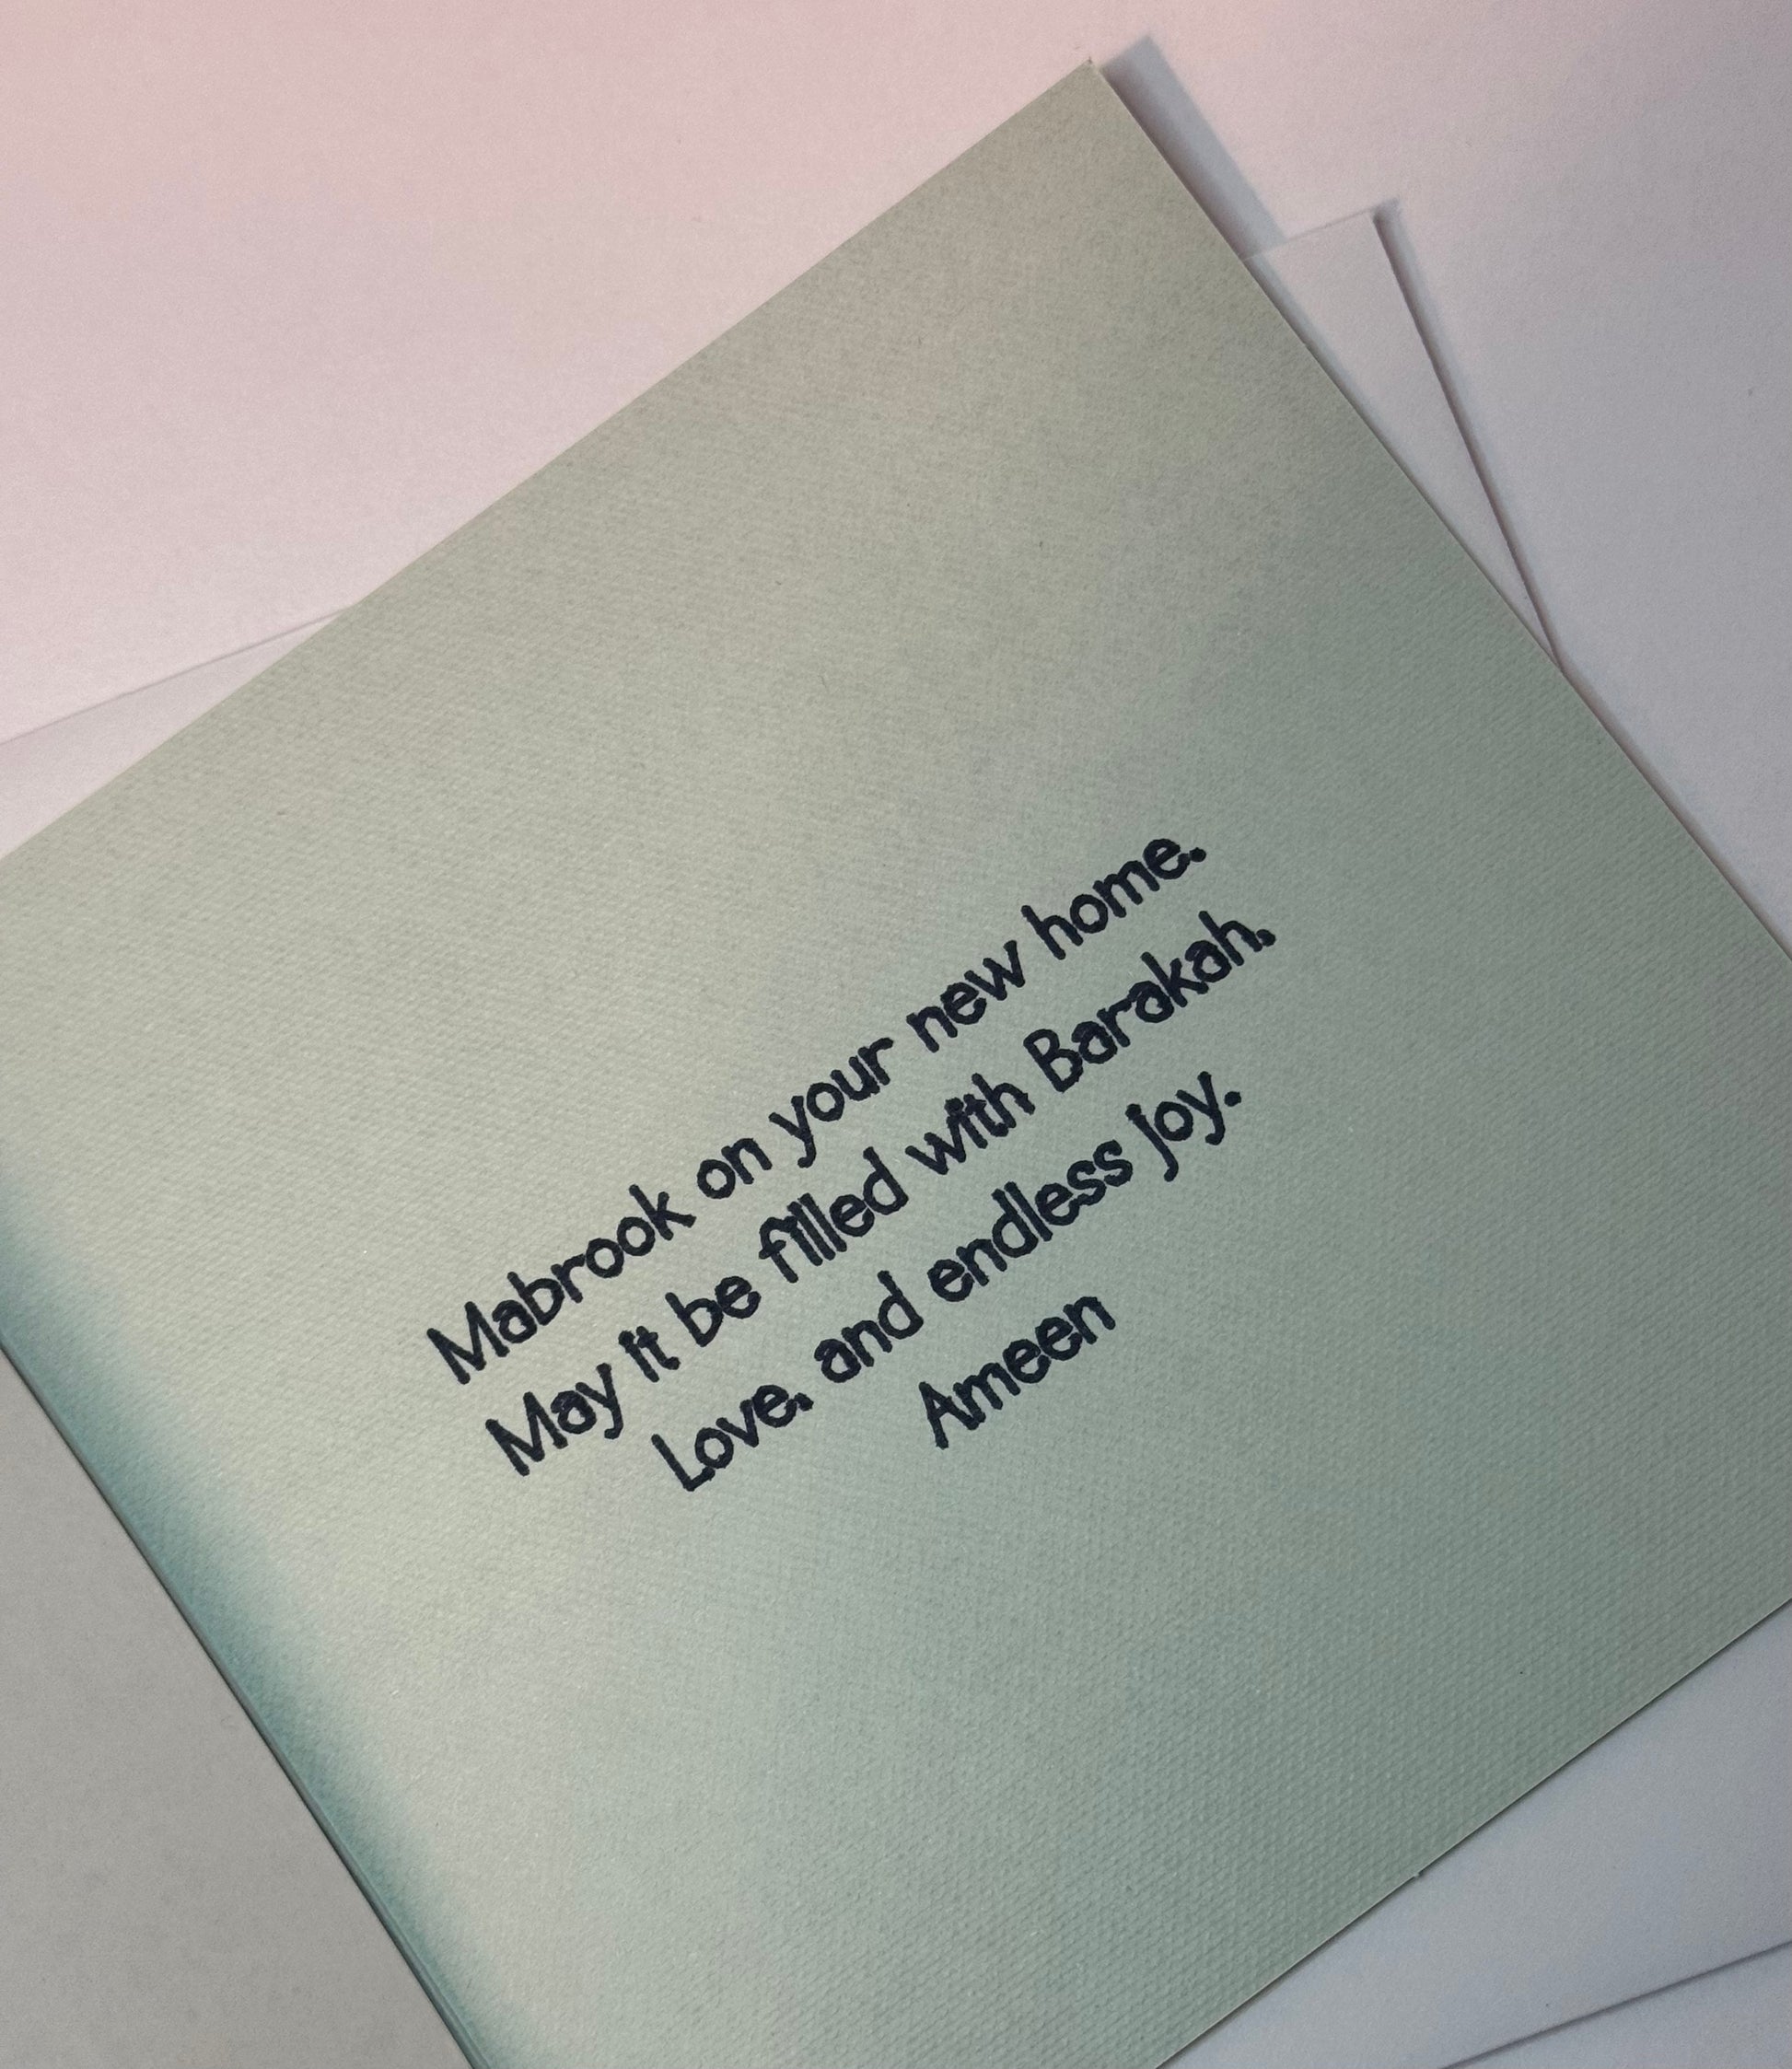 Mabrook on your new home.
May it be filled with Barakah,
Love, and endless joy.
Ameen